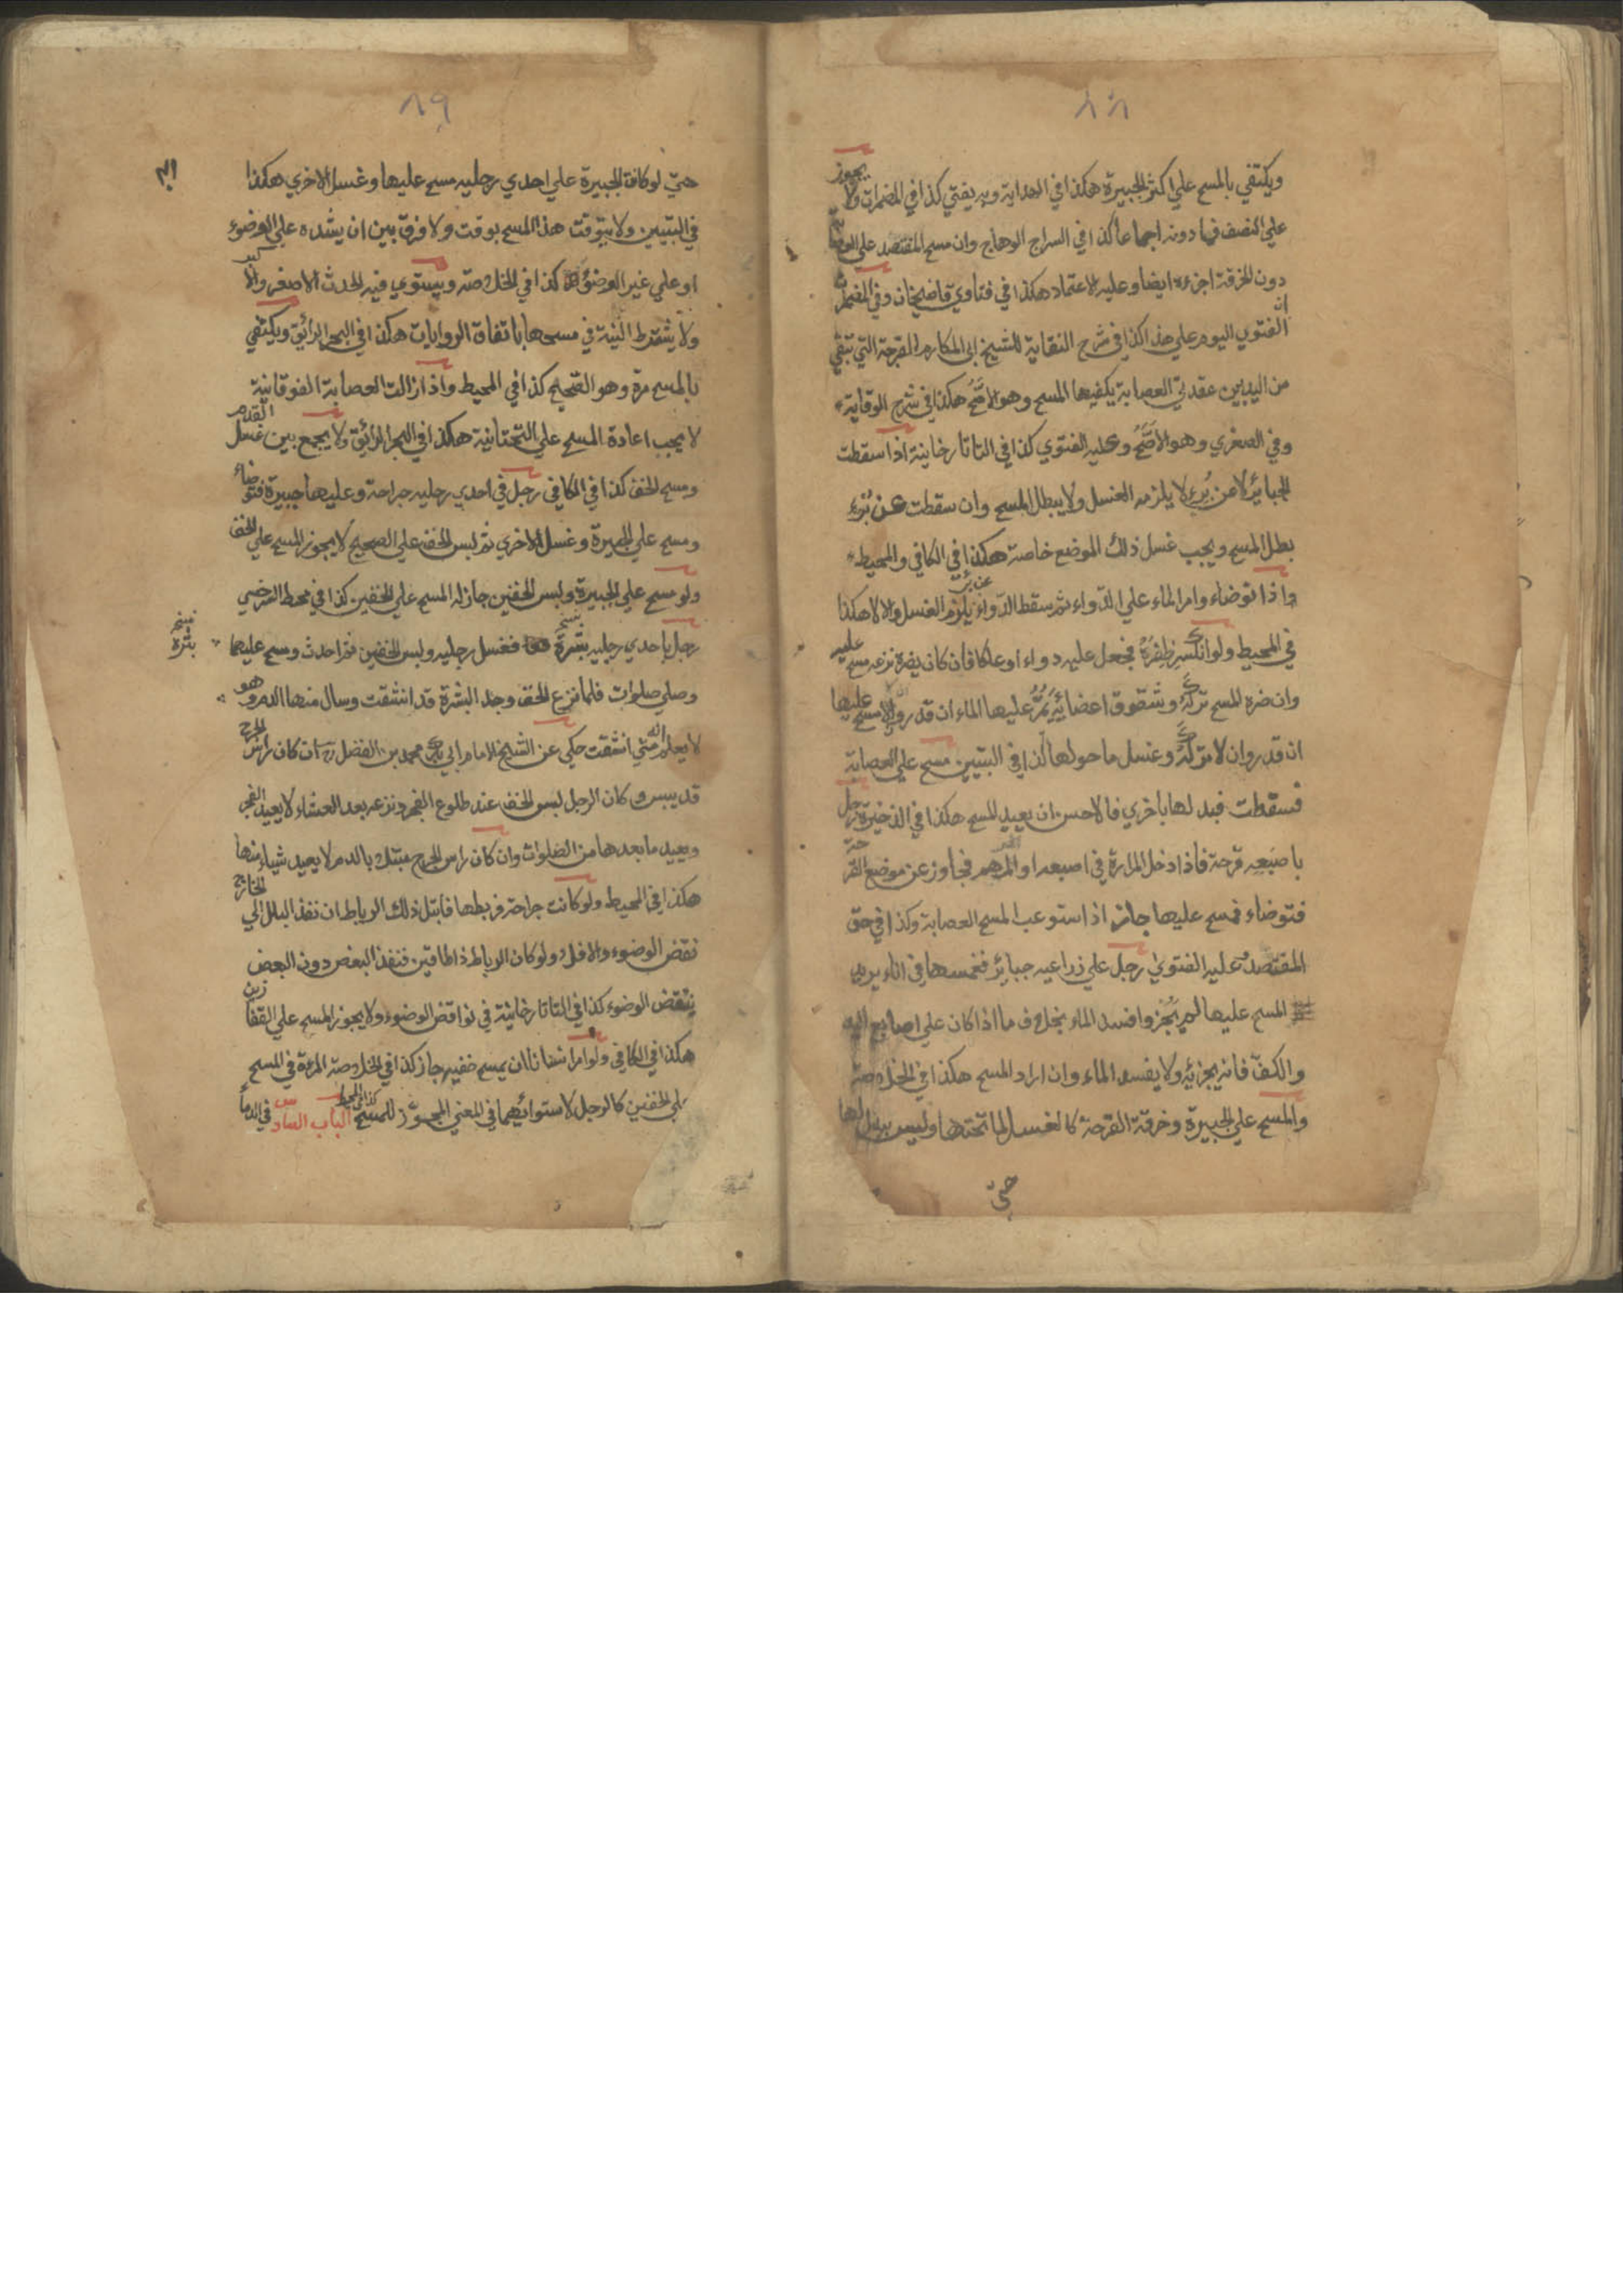 ٨٨
ويكتفي بالمسح علي اكثر الجبيرة هكذا في الهداية وبه يفتي كذا في المضمرات ولا يجوز
علي النصف فما دونه اجماعا كذا في السراج الوهاج وان مسح المفتصد علي العصابة
دون الخرقة اجزءه ايضا وعليه الاعتماد هكذا في فتاوي قاضيخان وفي المضمرات ان
الفتوي اليوم علي هذا كذا في شرح النقاية للشيخ ابي المكارم القرحة التي تبقي
من اليد بين عقدتي العصابة يكفيها المسح وهو الاصح هكذا في شرح الوقاية
وفي الصغري وهو الاصَحُّ وعليه الفتوي كذا في التاتارخانية اذا سقطت
الجبائر لا عن بُرء لا يلزمه الغسل ولا يبطل المسح وان سقطت عن بُرء
بطل المسح ويجب غسل ذلك الموضع خاصة هكذا في الكافي والمحيط
واذا توضاء وامر الماء علي الدواء ثم سقط الدواء عن برء يلزم الغسل والا لا هكذا
في المحيط ولو انكسر ظفره فجعل عليه دواء او علكا فان كان يضره نزعه مسح عليه
وان ضره المسح تركه وشقوق اعضائه يَمُرُّ عليها الماء ان قدر والا مسح عليها
ان قدر وان لا تركه وغسل ما حولها كذا في التبيين مسح علي العصابة
فسقطت فبدلها باخري فالاحسن ان يعيد المسح هكذا في الذخيرة رجل
باصبعه قرحة فاذا دخل المرارة في اصبعه او المرهم فجاوز عن موضع القرحة
فتوضاء فمسح عليها جاز اذا استوعب المسح العصابة وكذا في حق
المفتصد وعليه الفتوي رجل علي ذراعيه جبائر فغمسها في اناء يريد
المسح عليها لم يَجُز وافسد الماء بخلاف ما اذا كان علي اصابع اليد
والكف فانه يجزئه ولا يفسد الماء وان اراد المسح هكذا في الخلاصة
والمسح علي الجبيرة وخرقة القرحة كالغسل لما تحتها وليس ببدل لها
حتي
٨٩
حتي لو كانت الجبيرة علي احدي رجليه مسح عليها وغسل الاخري هكذا
في التبيين ولا يتوقت هذا المسح بوقت ولا فرق بين ان يشده علي الوضوء
او علي غير الوضوء كذا في الخلاصة ويستوي فيه الحدث الاصغر والاكبر
ولا يشترط النية في مسحها باتفاق الروايات هكذا في البحر الرائق ويكتفي
بالمسح مرة وهو الصحيح كذا في المحيط واذا زالت العصابة الفوقانية
لا يجب اعادة المسح علي التحتانية هكذا في البحر الرائق ولا يجمع بين غسل القدم
ومسح الخف كذا في الكافي رجل في احدي رجليه جراحة وعليها جبيرة فتوضاء
ومسح علي الجبيرة وغسل الاخري ثم لبس الخف علي الصحيح لا يجوز المسح علي الخف
ولو مسح علي الجبيرة ولبس الخفين جاز له المسح علي الخفين كذا في محيط السرخسي
رجل باحدي رجليه بثرة فغسل رجليه ولبس الخفين ثم احدث ومسح عليهما
نسخه بثرة
وصلي صلوات فلما نزع الخف وجد البشرة قد انشقت وسال منها الدم وهو
لا يعلم انه متي انشقت حكي عن الشيخ الامام ابي بكر محمد بن الفضل رح ان كان راس الجرح
قد يبس وكان الرجل لبس الخف عند طلوع الفجر ونزعه بعد العشاء لا يعيد الفجر
ويعيد ما بعدها من الصلوات وان كان راس الجرح مبتل بالدم لا يعيد شياء منها
هكذا في المحيط ولو كانت جراحة فربطها فابتل ذلك الرباط ان نفذ البلل الي الخارج
نقض الوضوء والا فلا ولو كان الرباط ذا طاقين فنفذ البعض دون البعض
ينقض الوضوء كذا في التاتارخانية في نواقض الوضوء ولا يجوز المسح علي القفازين
هكذا في الكافي ولو امر انسانا ان يمسح خفيه جاز كذا في الخلاصة المرءة في المسح
علي الخفين كالرجل لاستوائهما في المعني المجوّز للمسح كذا في المحيط الباب السادس في الدماء